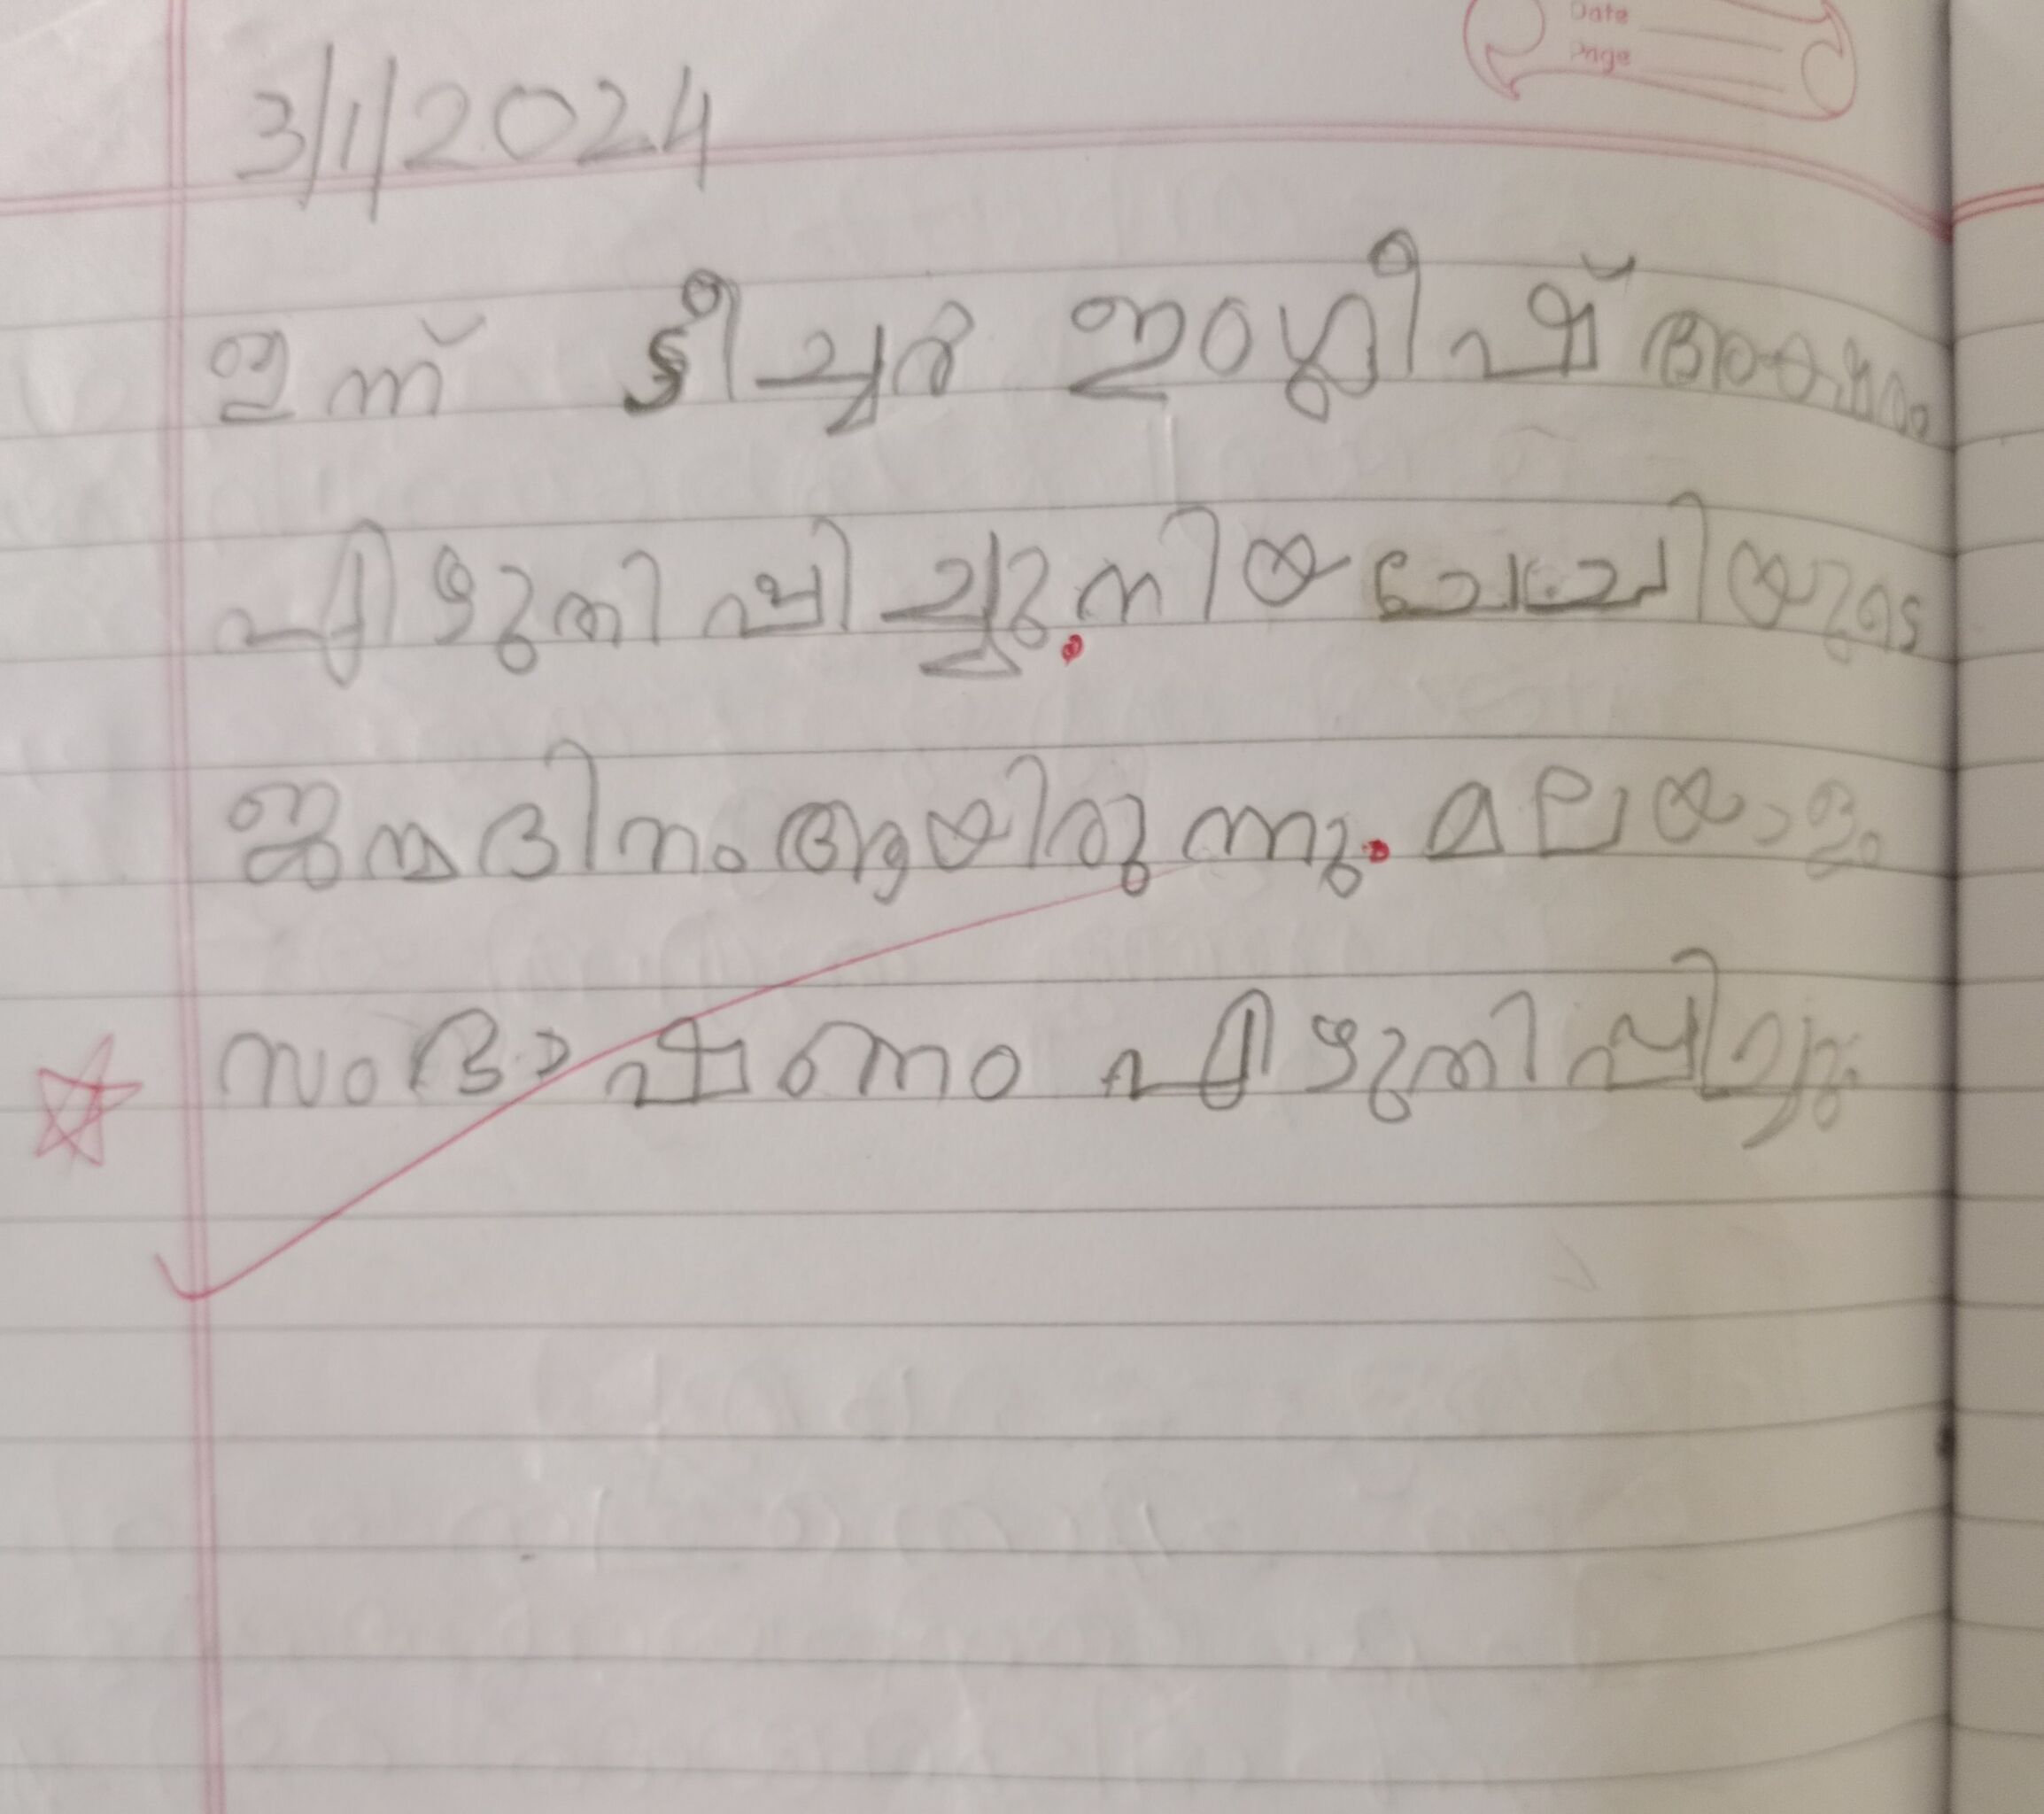 Date
Page
3/1/2024
ഇന്ന് ടീച്ചർ ഇംഗ്ലീഷ്
എഴുതിപ്പിച്ചു. നിയ ചേച്ചിയുടെ
ജന്മദിനം ആയിരുന്നു. മലയാളം
സംഭാഷണം എഴുതിപ്പിച്ചു